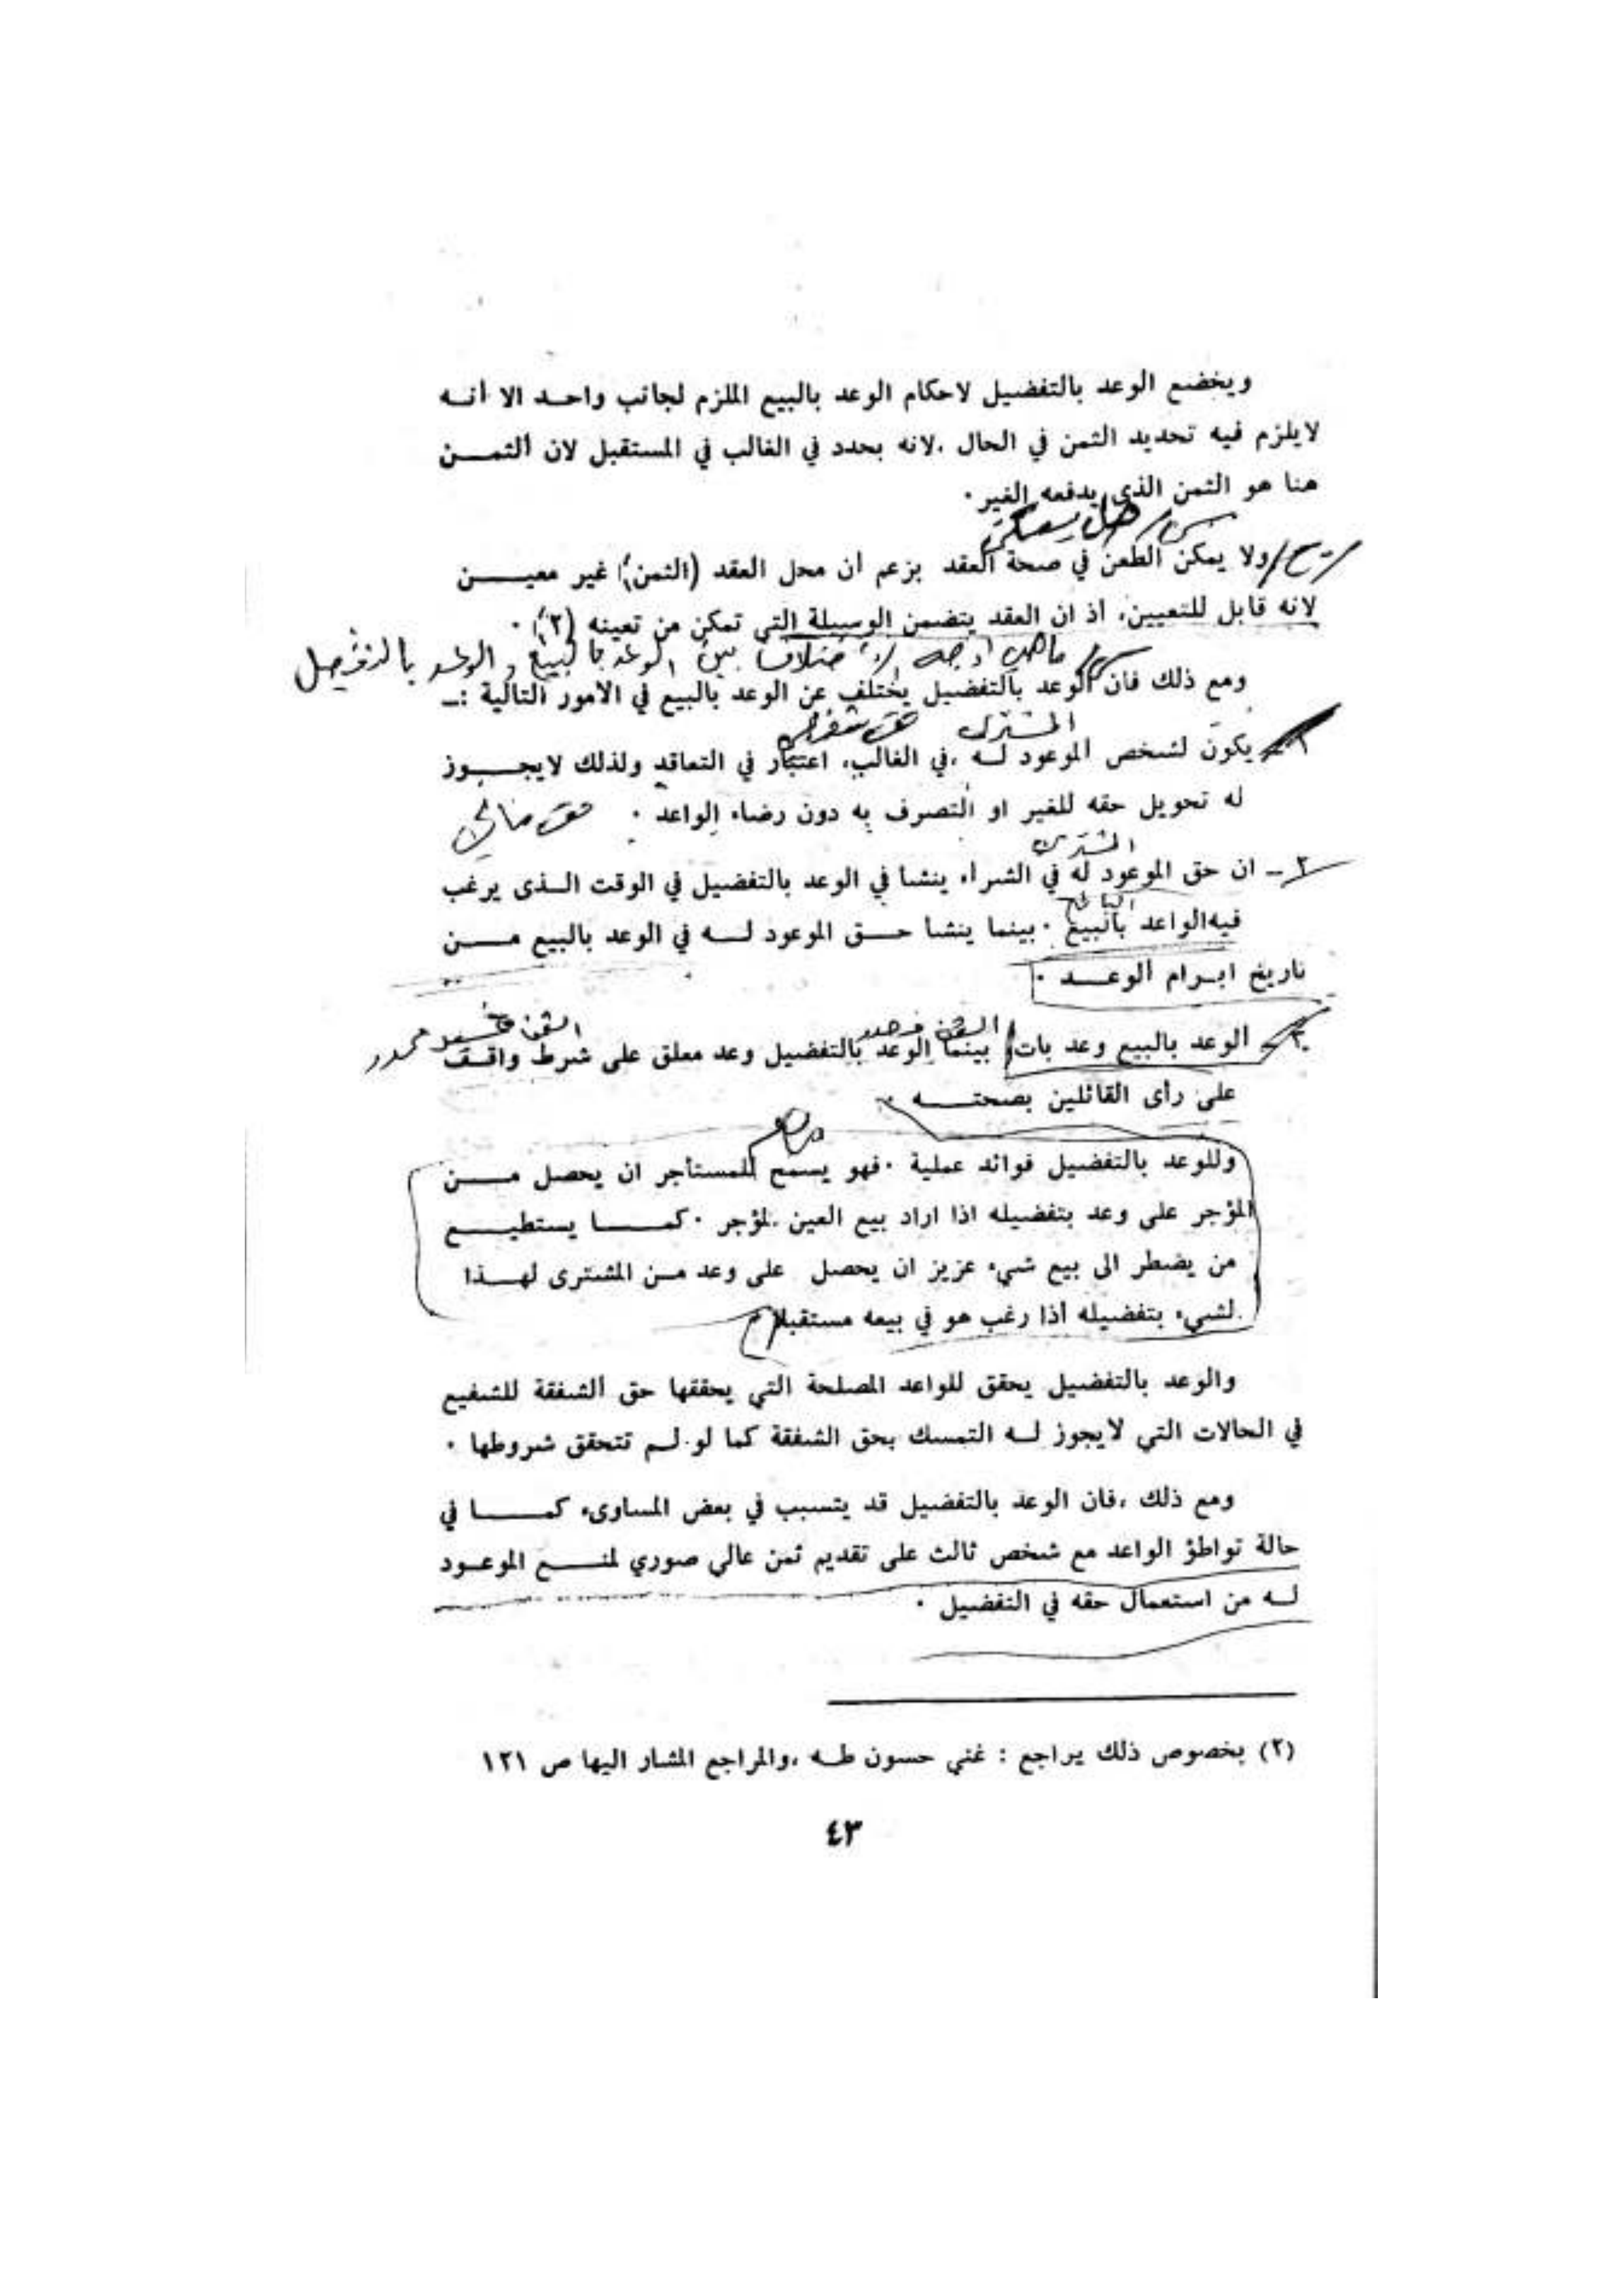 ويخضع الوعد بالتفضيل لاحكام الوعد بالبيع الملزم لجانب واحد الا أنه
لايلزم فيه تحديد الثمن في الحال ،لانه يحدد في الغالب في المستقبل لان الثمن
هنا هو الثمن الذى يدفعه الغير ٠
س/ هل يمكن
ج/ ولا يمكن الطعن في صحة العقد بزعم ان محل العقد (الثمن) غير معين
لانه قابل للتعيين، اذ ان العقد يتضمن الوسيلة التي تمكن من تعينه (٢) ٠
س/ ماهي اوجه الاختلاف بين الوعد بالبيع والوعد بالتفضيل
ومع ذلك فان الوعد بالتفضيل يختلف عن الوعد بالبيع في الامور التالية :ـ
المشتري حق شخصي
١ـ يكون لشخص الموعود له ،في الغالب، اعتبار في التعاقد ولذلك لايجوز
له تحويل حقه للغير او التصرف به دون رضاء الواعد ٠ حق مالي
المشتري
٢ـ ان حق الموعود له في الشراء ينشا في الوعد بالتفضيل في الوقت الذى يرغب
البائع
فيه الواعد بالبيع ٠ بينما ينشا حق الموعود له في الوعد بالبيع من
تاريخ ابرام الوعد ٠
الثمن محدد الثمن غير محدد
٣ـ الوعد بالبيع وعد بات، بينما الوعد بالتفضيل وعد معلق على شرط واقف
على رأى القائلين بصحته ٠
وللوعد بالتفضيل فوائد عملية ٠ فهو يسمح للمستأجر ان يحصل من
المؤجر على وعد بتفضيله اذا اراد بيع العين المؤجر ٠ كما يستطيع
من يضطر الى بيع شيء عزيز ان يحصل على وعد من المشترى لهذا
لشيء بتفضيله اذا رغب هو في بيعه مستقبلا ٠
والوعد بالتفضيل يحقق للواعد المصلحة التي يحققها حق الشفقة للشفيع
في الحالات التي لايجوز له التمسك بحق الشفقة كما لو لم تتحقق شروطها ٠
ومع ذلك ،فان الوعد بالتفضيل قد يتسبب في بعض المساوىء كما في
حالة تواطؤ الواعد مع شخص ثالث على تقديم ثمن عالي صوري لمنع الموعود
له من استعمال حقه في التفضيل ٠
(٢) بخصوص ذلك يراجع : غني حسون طه ،والمراجع المشار اليها ص ١٢١
٤٣